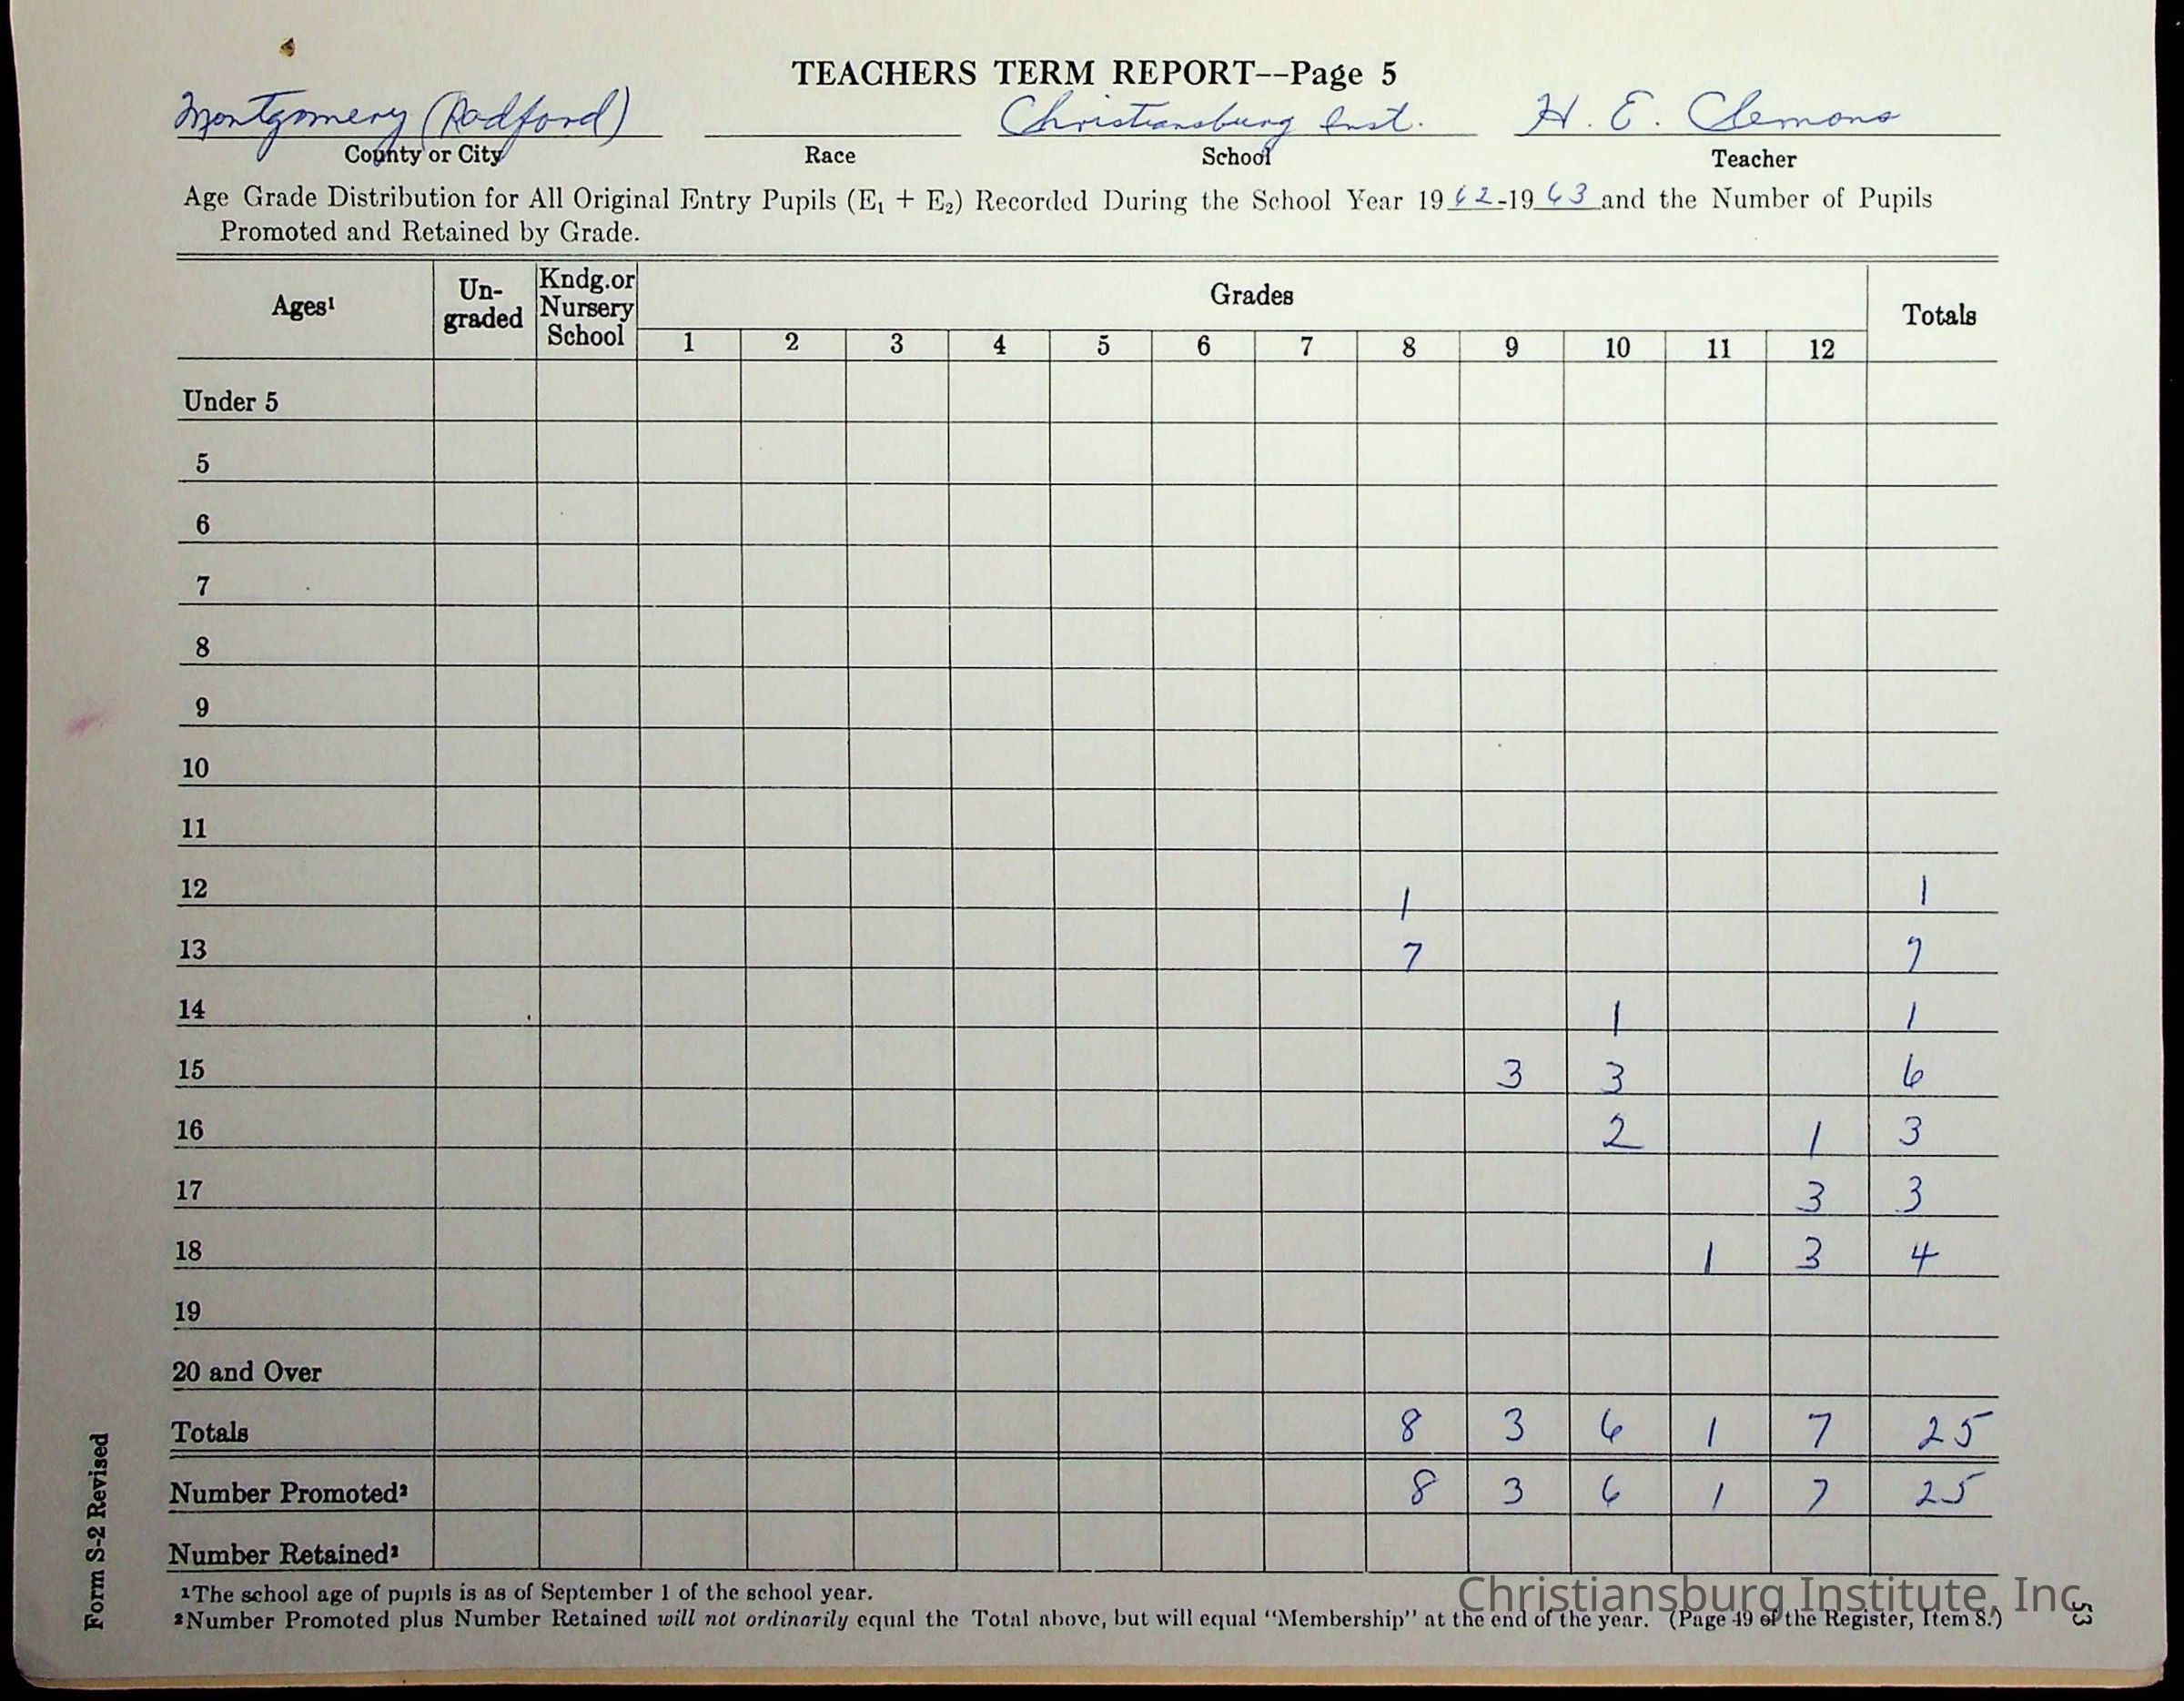 TEACHERS TERM REPORT--Page 5
Montgomery (Radford) Christiansburg Inst. H. E. Clemons
County or City Race School Teacher
Age Grade Distribution for All Original Entry Pupils (E₁ + E₂) Recorded During the School Year 1962-1963 and the Number of Pupils
Promoted and Retained by Grade.
Ages¹ Un-graded Kndg.or Nursery School Grades Totals
1 2 3 4 5 6 7 8 9 10 11 12
Under 5
5
6
7
8
9
10
11
12 1 1
13 7 7
14 1 1
15 3 3 6
16 2 1 3
17 3 3
18 1 3 4
19
20 and Over
Totals 8 3 6 1 7 25
Number Promoted² 8 3 6 1 7 25
Number Retained²
¹The school age of pupils is as of September 1 of the school year.
²Number Promoted plus Number Retained will not ordinarily equal the Total above, but will equal "Membership" at the end of the year. (Page 49 of the Register, Item 8.)
Form S-2 Revised
53
Christiansburg Institute, Inc.